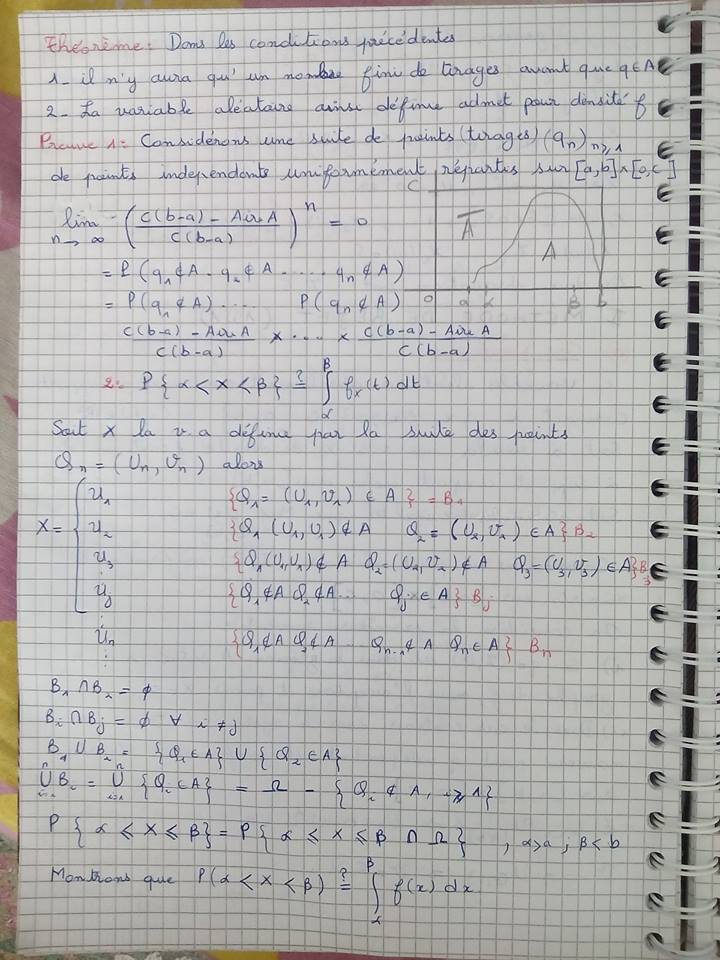 Théorème: Dans les conditions précédentes
1- il n'y aura qu'un nombre fini de tirages avant que q∈A
2- La variable aléatoire ainsi définie admet pour densité f
Preuve 1: Considérons une suite de points (tirages) (qn)n≥1
de points independants uniformément répartis sur [a,b]×[0,c]
lim n→∞ ((c(b-a) - Aire A)/(c(b-a)))^n = 0
= P(q1∉A . q2∉A ..... qn∉A)
= P(q1∉A) .... P(qn∉A)
(c(b-a) - Aire A)/(c(b-a)) × .... × (c(b-a) - Aire A)/(c(b-a))
C
Ā
A
0 a α β b
2- P{α<X<β} ≟ ∫_α^β fx(t) dt
Soit X la v.a définie par la suite des points
Qn = (Un, Vn) alors
X = { U1 {Q1 = (U1,V1) ∈ A} = B1
U2 {Q1 (U1,V1) ∉ A Q2 = (U2,V2) ∈ A} B2
U3 {Q1(U1,V1) ∉ A Q2=(U2,V2) ∉ A Q3=(U3,V3) ∈ A} B3
⋮
Uj {Q1∉A Q2∉A... Qj ∈ A} Bj
⋮
Un {Q1∉A Q2∉A ... Qn-1∉A Qn∈A} Bn
⋮
B1 ∩ B2 = ϕ
Bi ∩ Bj = ϕ ∀ i ≠ j
B1 ∪ B2 = {Q1∈A} ∪ {Q2∈A}
⋃_{i=1}^n Bi = ⋃_{i=1}^n {Qi∈A} = Ω - {Qi ∉ A, i≥1}
P{α ≤ X ≤ β} = P{α ≤ X ≤ β ∩ Ω} , α>a ; β<b
Montrons que P(α<X<β) ≟ ∫_α^β f(x) dx